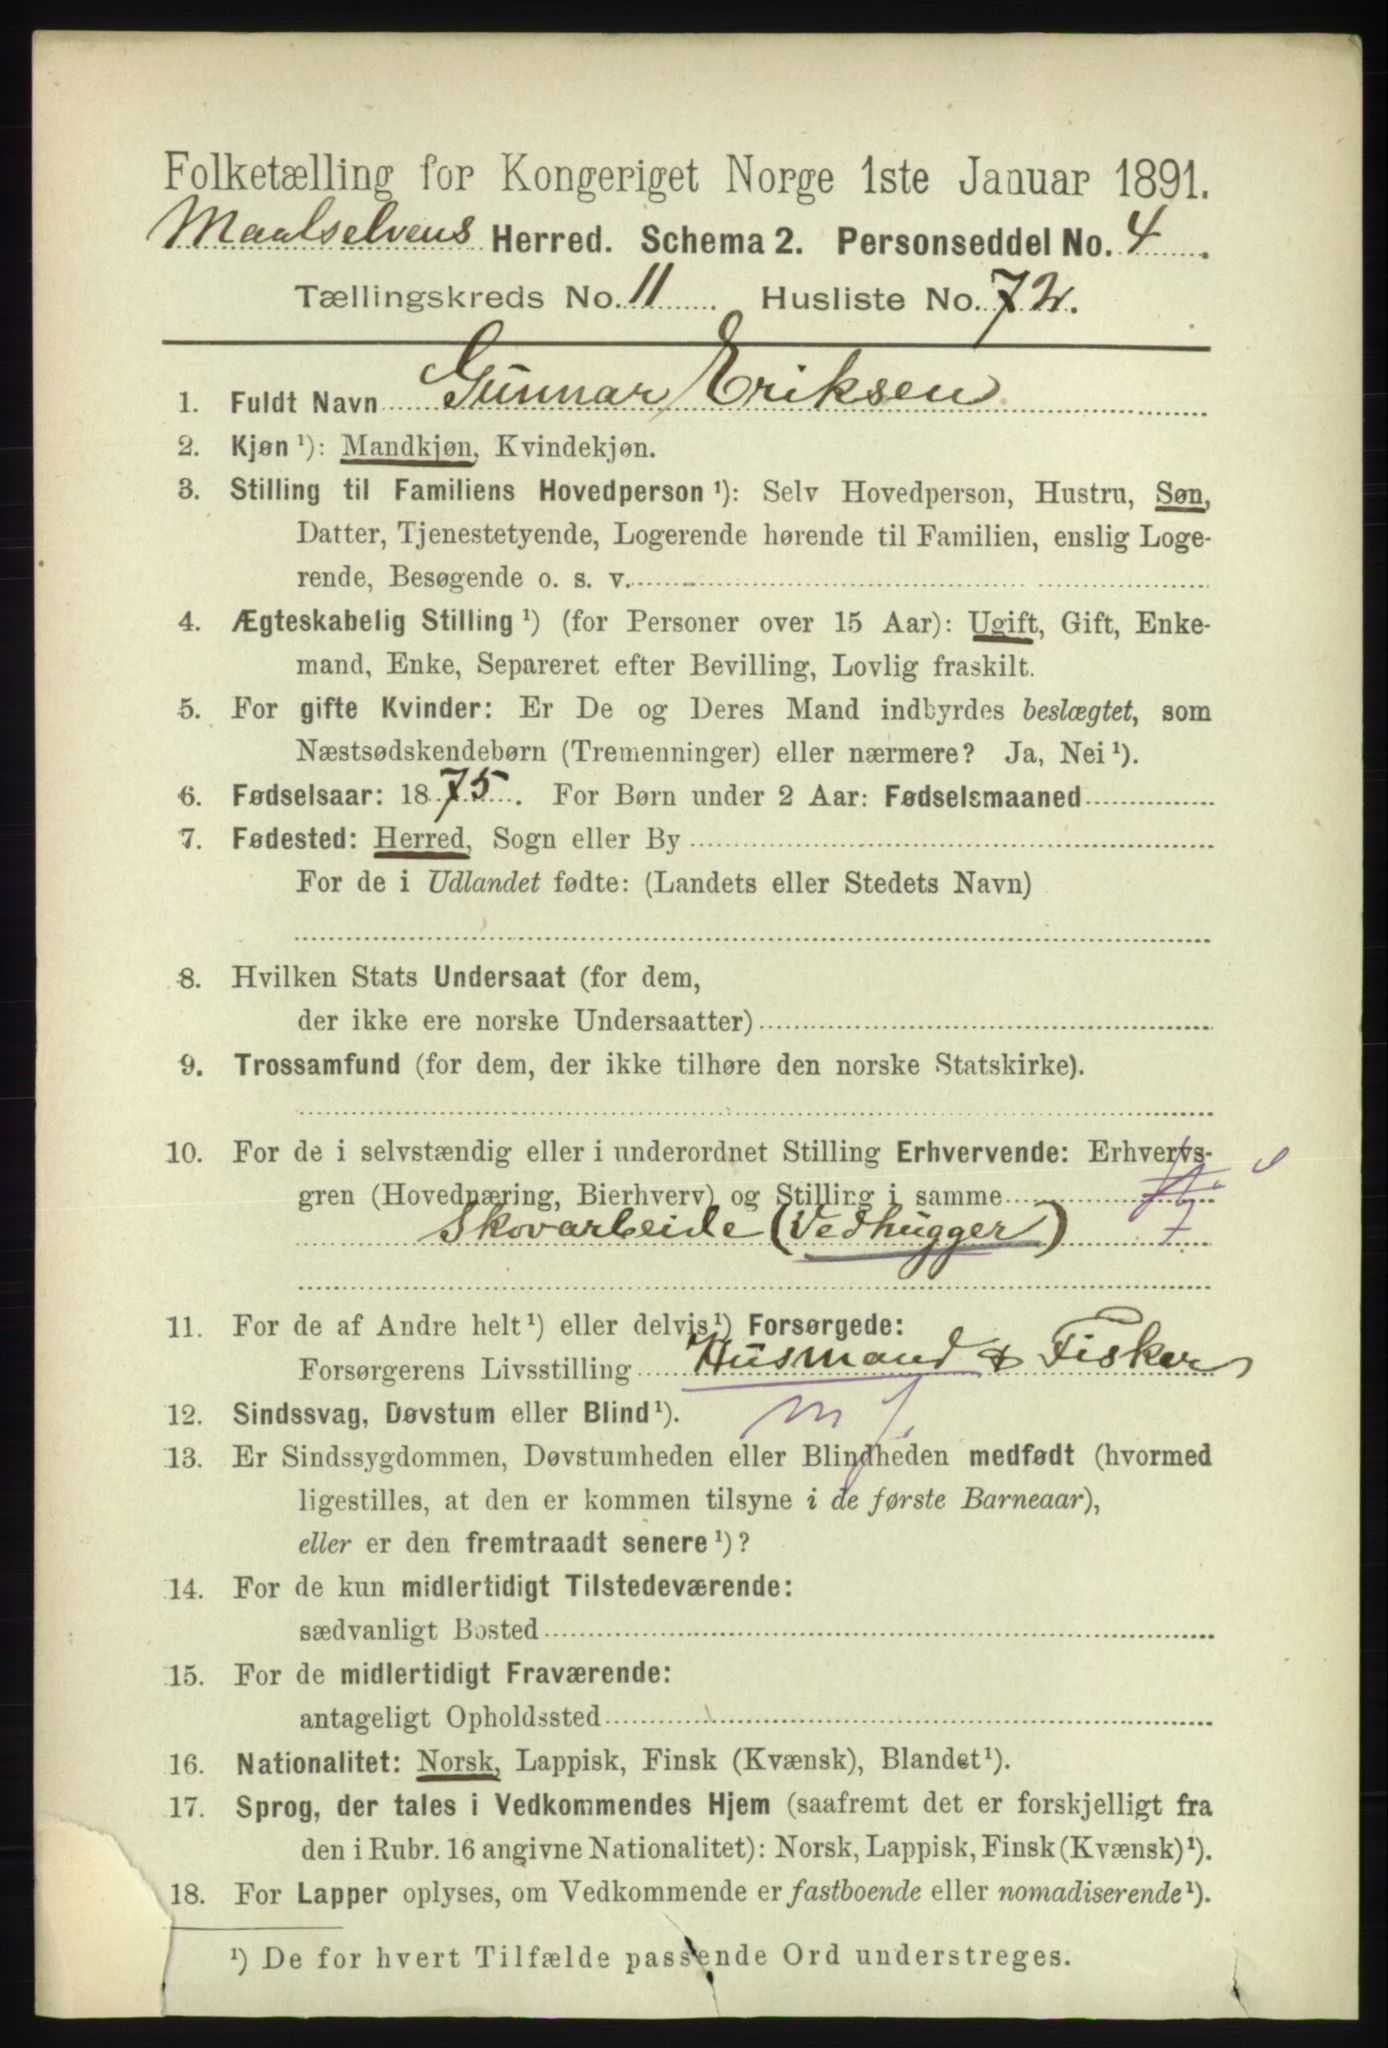 Folketælling for Kongeriget Norge 1ste Januar 1891.
Maalselvens Herred. Schema 2. Personseddel No. 4.
Tællingskreds No. 11. Husliste No. 72.
1. Fuldt Navn Gunnar Eriksen
2. Kjøn ¹): Mandkjøn, Kvindekjøn.
3. Stilling til Familiens Hovedperson ¹): Selv Hovedperson, Hustru, Søn,
Datter, Tjenestetyende, Logerende hørende til Familien, enslig Loge-
rende, Besøgende o. s. v.
4. Ægteskabelig Stilling ¹) (for Personer over 15 Aar): Ugift, Gift, Enke-
mand, Enke, Separeret efter Bevilling, Lovlig fraskilt.
5. For gifte Kvinder: Er De og Deres Mand indbyrdes beslægtet, som
Næstsødskendebørn (Tremenninger) eller nærmere? Ja, Nei ¹).
6. Fødselsaar: 1875. For Børn under 2 Aar: Fødselsmaaned
7. Fødested: Herred, Sogn eller By
For de i Udlandet fødte: (Landets eller Stedets Navn)
8. Hvilken Stats Undersaat (for dem,
der ikke ere norske Undersaatter)
9. Trossamfund (for dem, der ikke tilhøre den norske Statskirke).
10. For de i selvstændig eller i underordnet Stilling Erhvervende: Erhvervs-
gren (Hovednæring, Bierhverv) og Stilling i samme
Skovarbeide (Vedhugger)
11. For de af Andre helt ¹) eller delvis ¹) Forsørgede:
Forsørgerens Livsstilling Husmand & Fisker
12. Sindssvag, Døvstum eller Blind ¹).
13. Er Sindssygdommen, Døvstumheden eller Blindheden medfødt (hvormed
ligestilles, at den er kommen tilsyne i de første Barneaar),
eller er den fremtraadt senere ¹)?
14. For de kun midlertidigt Tilstedeværende:
sædvanligt Bosted
15. For de midlertidigt Fraværende:
antageligt Opholdssted
16. Nationalitet: Norsk, Lappisk, Finsk (Kvænsk), Blandet ¹).
17. Sprog, der tales i Vedkommendes Hjem (saafremt det er forskjelligt fra
den i Rubr. 16 angivne Nationalitet): Norsk, Lappisk, Finsk (Kvænsk) ¹).
18. For Lapper oplyses, om Vedkommende er fastboende eller nomadiserende ¹).
¹) De for hvert Tilfælde passende Ord understreges.